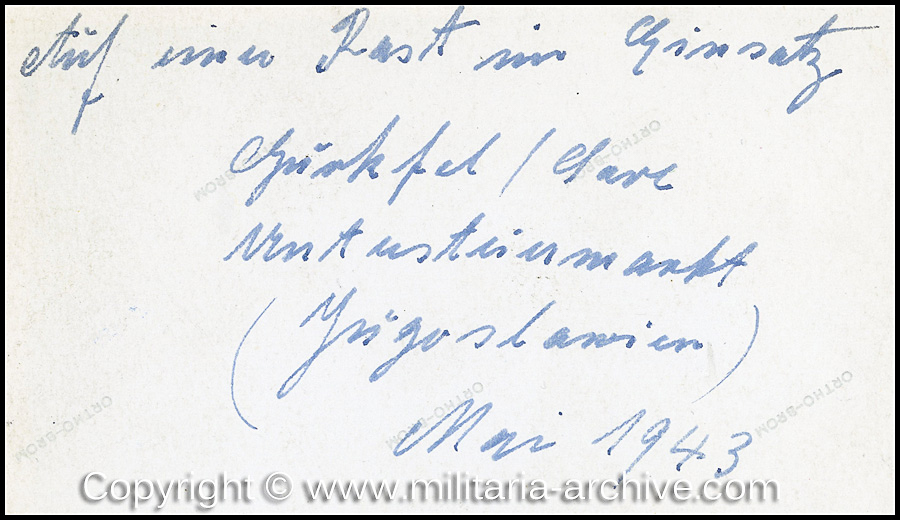 Auf einer Rast im Einsatz
Gurkfel / Save
Untersteiermarkt
(Jugoslawien)
Mai 1943
ORTHO-BROM
ORTHO-BROM
ORTHO-BROM
ORTHO-BROM
ORTHO-BROM
Copyright © www.militaria-archive.com